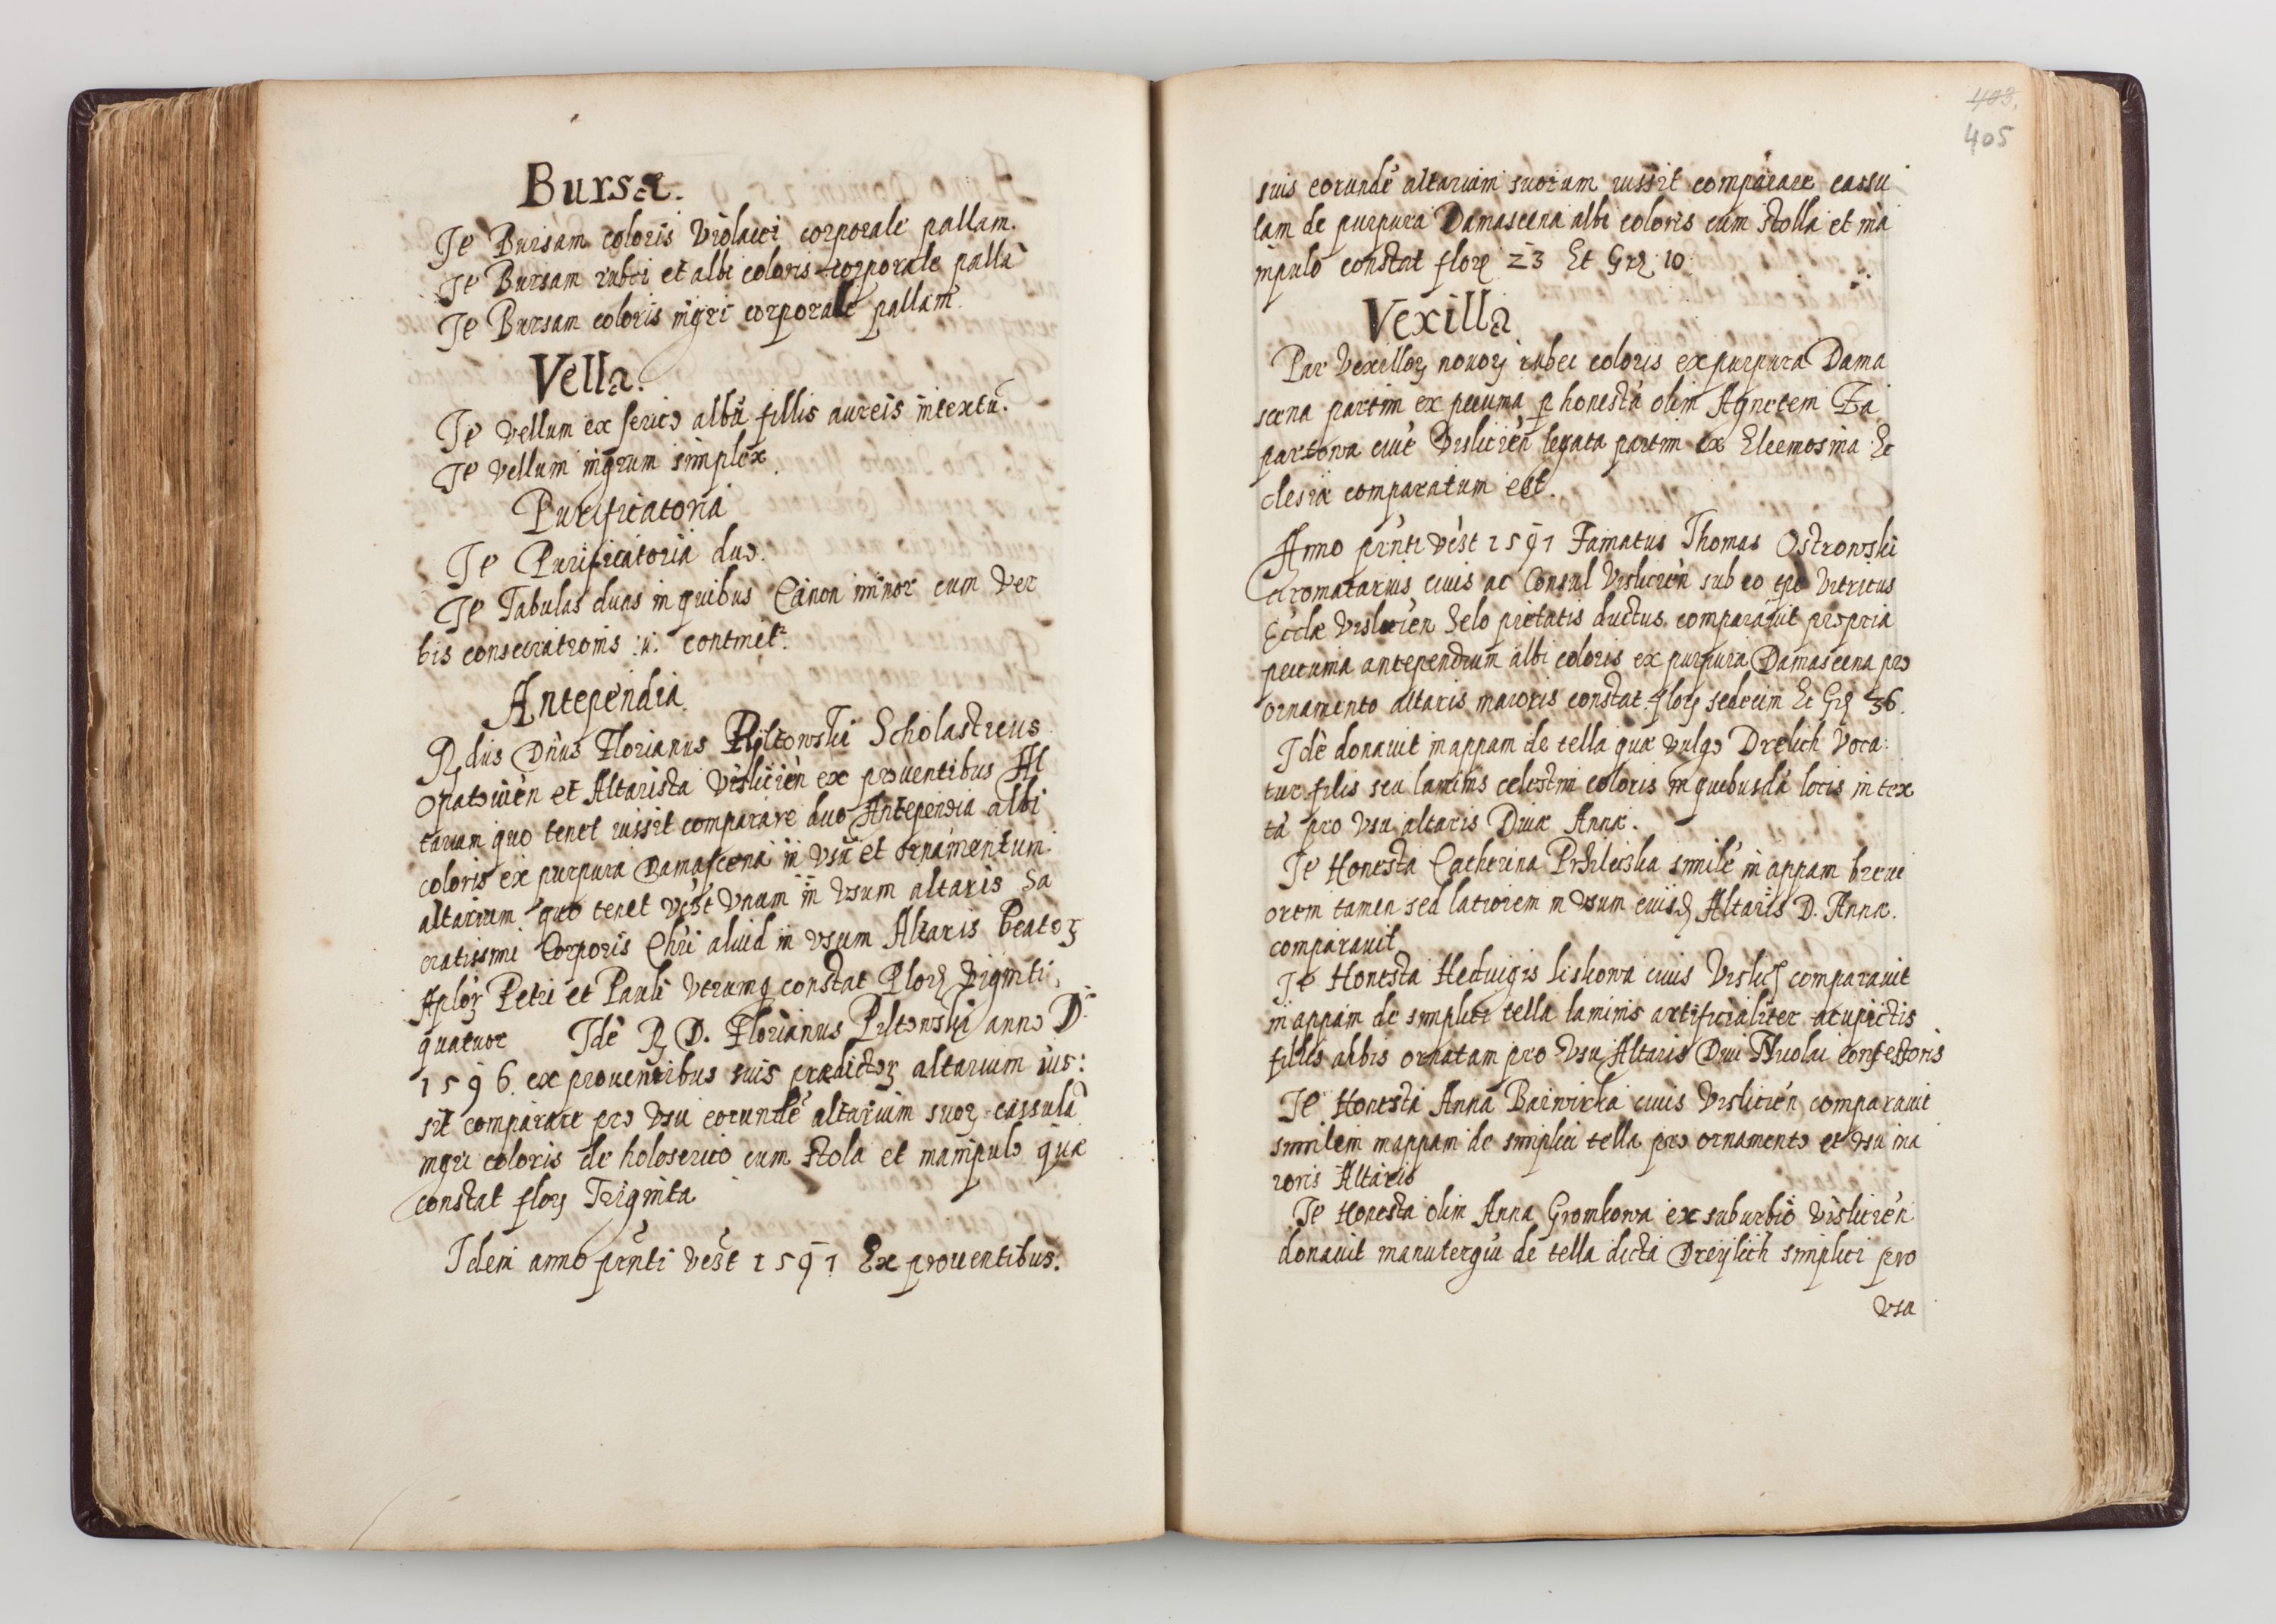 Bursæ.
Ite Bursam coloris Violacei corporale pallam.
Ite Bursam rubei et albi coloris corporale pallã
Ite Bursam coloris nigri corporale pallam.
Vella.
Ite vellum ex serico albũ fillis aureis intextũ.
Ite vellum nigrum simplex.
Purificatoria
Ite Purificatoria duo.
Ite Tabulas duas in quibus Canon minor cum Ver
bis consecrationis contĩnet
Antependia
Rdus Dñus Florianus Piltowski Scholasticus
Opatouień et Altarista Vislicień ex prouentibus Al
tarium quo tenet iussit comparare duo Antependia albi
coloris ex purpura Damascena in vsũ et ornamentum
altarium quo tenet vcst vnum in vsum altaris Sa
cratissimi Corporis Chri aliud in vsum Altaris beatoꝝ
Aploꝝ Petri et Pauli vtrumqꝫ constat Floꝝ viginti
quatuor Idẽ R D. Florianus Piltowski anno D
1596. ex prouentibus suis prædictoꝝ altarium ius:
sit comparare pro vsu eorundẽ altarium suoꝝ cassulã
nigri coloris de holoserico cum stola et manipulo quæ
constat floꝝ Triginta
Idem anno pñti vcst 1597 Ex prouentibus.
403.
405
suis eorundẽ altarium suorum iussit comparare cassu
lam de purpura Damascena albi coloris cum stolla et ma
nipulo constat floꝝ 23 Et Grꝫ 10
Vexilla
Par Vexilloꝝ nouoꝝ rubei coloris ex purpura Dama
scena partim ex pecunia ꝑ honestã olim Agnetem Za
partowa ciuẽ Vislicień legata partim ex Eleemosina Ec
clesiæ comparatum est.
Anno pñti vcst 1597 Famatus Thomas Ostrowski
aromatarius ciuis ac Consul Vislicień sub eo tpe Vitricus
Ecclæ Vislicień Selo pietatis ductus comparauit propria
pecunia antependium albi coloris ex purpura Damascena pro
ornamento altaris maioris constat floꝝ sedecim Et Grꝫ 36.
Idẽ donauit mappam de tella quæ vulgo Drelich Voca
tur filis seu laminis celestini coloris in quibusdã locis intex
tã pro Vsu altaris Diuæ Annæ.
Ite Honesta Catherina similẽ mappam breui
orem tamen sed latiorem in vsum eiusdꝫ Altaris D. Annæ.
comparauit
Ite Honesta Heduigis liskowa ciuis Vislic comparauit
mappam de simplici tella laminis artificialiter acupictis
fillis albis ornatam pro Vsu Altaris Diui Nicolai confessoris
Ite Honesta Anna Barwirka ciuis Vislicień comparauit
similem mappam de simplici tella pro ornamento et vsu ma
ioris Altaris
Ite Honesta olim Anna Grombowa ex suburbio Vislicień
donauit manutergiũ de tella dicta Dreÿlich simplici pro
vsu